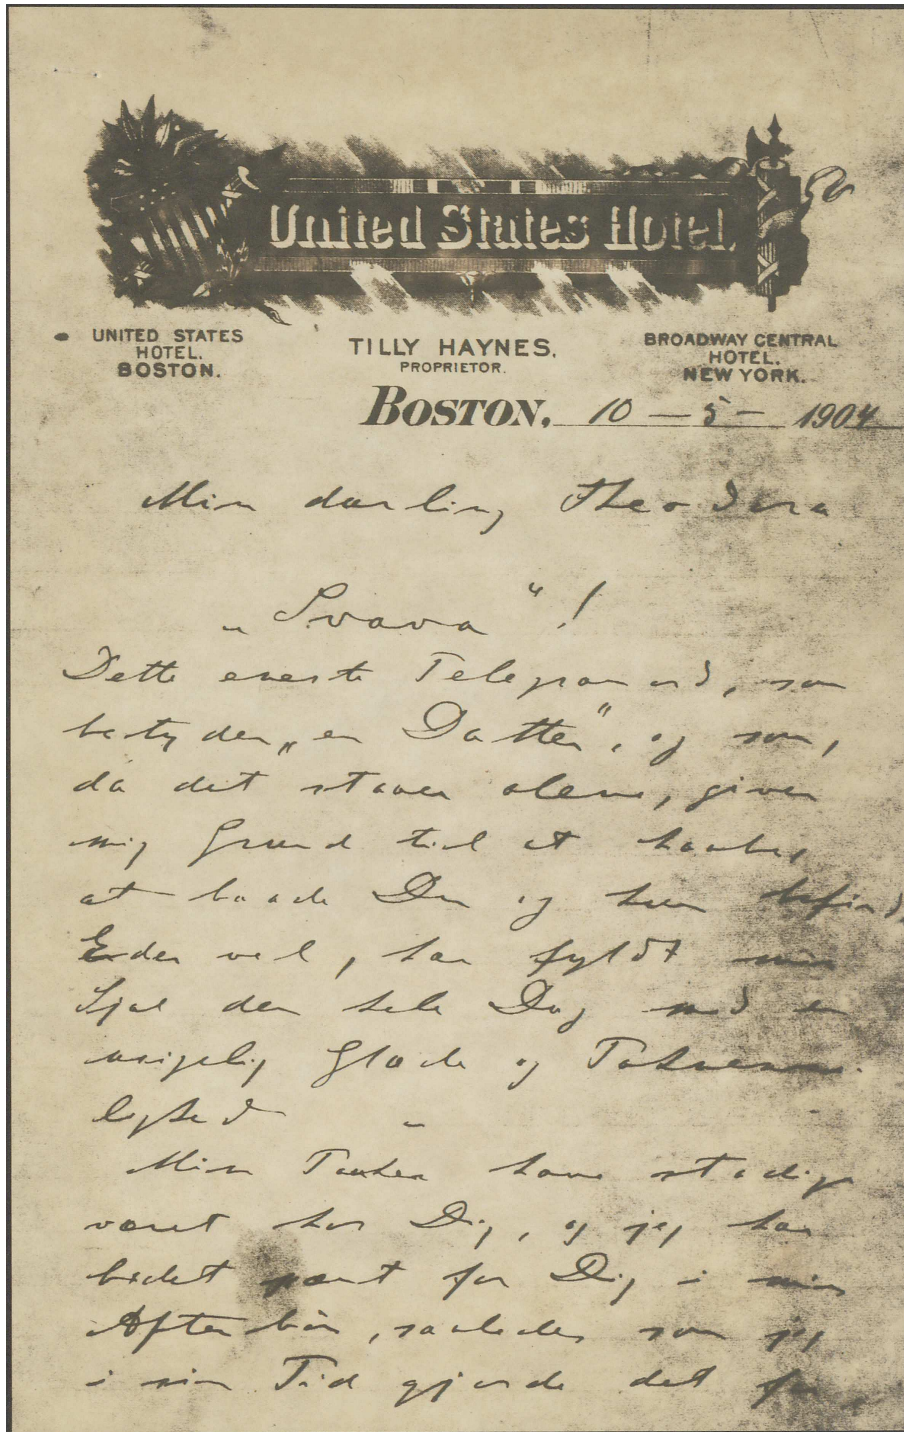 United States Hotel.
UNITED STATES
HOTEL.
BOSTON.
TILLY HAYNES,
PROPRIETOR.
BROADWAY CENTRAL
HOTEL.
NEW YORK.
BOSTON, 10 – 5 – 1904
Min darling Theodora
„Svava“!
Dette eneste Telegramord, som
betyder „en Datter“, og som,
da det staaer alene, giver
mig Grund til at haabe,
at baade Du og hun befind
Eder vel, har fyldt min
Sjæl den hele Dag med en
usigelig Glæde og Taknem-
lighed –
Mine Tanker have stadig
været hos Dig, og jeg har
bedet for Dig i min
Aftenbön, saaledes som jeg
i sin Tid gjorde det for